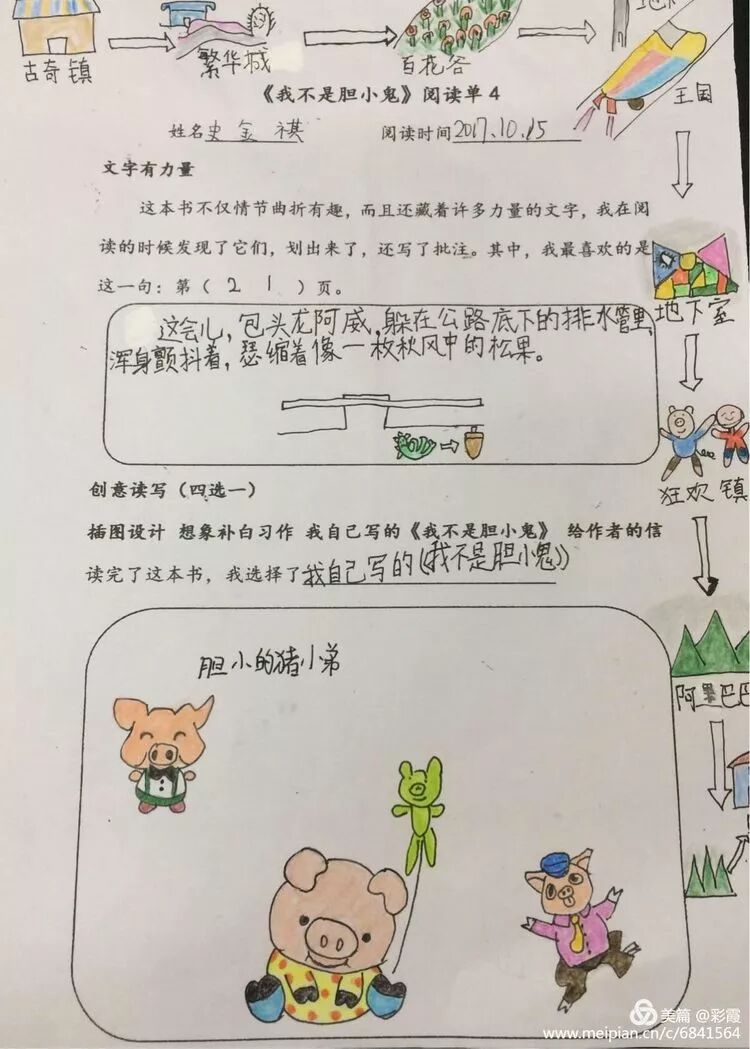 古奇镇
繁华城
百花谷
地下
王国
《我不是胆小鬼》阅读单4
姓名史金祺 阅读时间2017.10.15
文字有力量
这本书不仅情节曲折有趣，而且还藏着许多力量的文字，我在阅
读的时候发现了它们，划出来了，还写了批注。其中，我最喜欢的是
这一句：第（21）页。
地下室
这会儿，包头龙阿威，躲在公路底下的排水管里，
浑身颤抖着，瑟缩着像一枚秋风中的松果。
狂欢镇
创意读写（四选一）
插图设计 想象补白习作 我自己写的《我不是胆小鬼》 给作者的信
读完了这本书，我选择了我自己写的《我不是胆小鬼》
胆小的猪小弟
阿里巴巴
美篇 @彩霞
www.meipian.cn/c/6841564